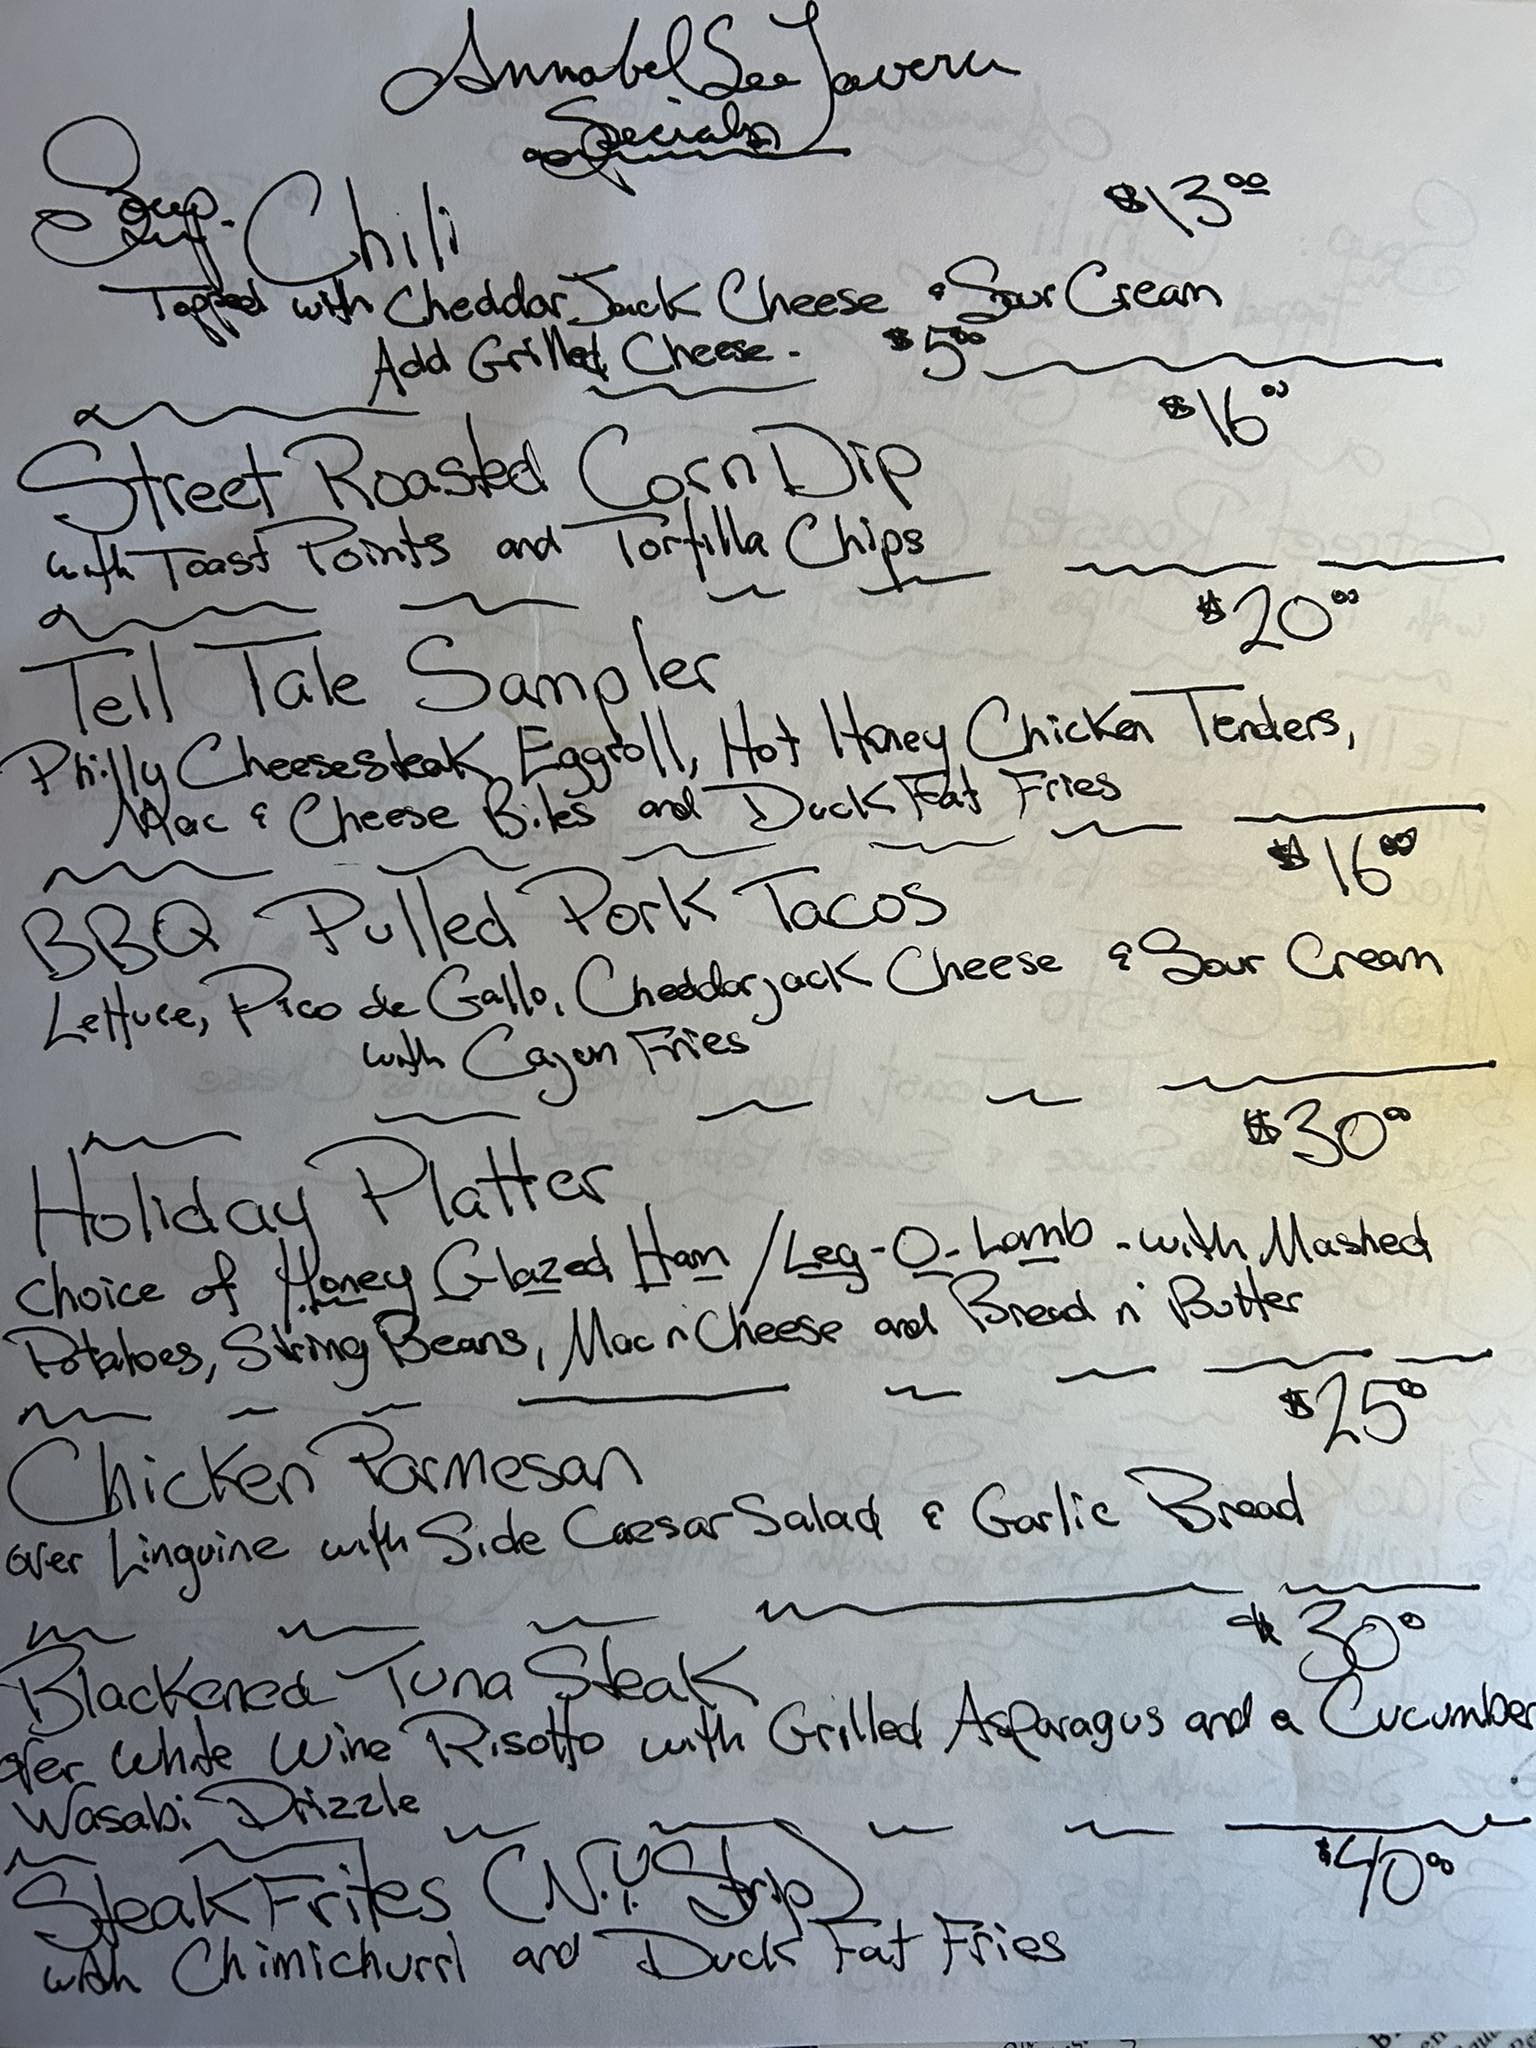 Annabel Lee Tavern
Specials
Soup. Chili $13.00
Topped with Cheddar Jack Cheese & Sour Cream
Add Grilled Cheese - $5.00
$16.00
Street Roasted Corn Dip
with Toast Points and Tortilla Chips
$20.00
Tell Tale Sampler
Philly Cheesesteak Eggroll, Hot Honey Chicken Tenders,
Mac & Cheese Bites and Duck Fat Fries
$16.00
BBQ Pulled Pork Tacos
Lettuce, Pico de Gallo, Cheddarjack Cheese & Sour Cream
with Cajun Fries
$30.00
Holiday Platter
choice of Honey Glazed Ham / Leg-O-Lamb - with Mashed
Potatoes, String Beans, Mac n' Cheese and Bread n' Butter
$25.00
Chicken Parmesan
over Linguine with Side Caesar Salad & Garlic Bread
$30.0
Blackened Tuna Steak
over White Wine Risotto with Grilled Asparagus and a Cucumber
Wasabi Drizzle
$40.00
Steak Frites (N.Y. Strip)
with Chimichurri and Duck Fat Fries